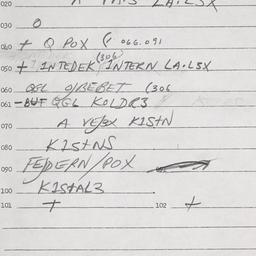 020 A THIS LA.LSX
030 O
040 + Q POX ( 066.091
(306)
050 + INTEDEK INTERN LA.LSX
060 QGL O/BEBET (306
061 -BUT QGL KOLDR3
070 A VE/3X K1StN
080 K1StNS
090 FEDERN/POX
100 K1StAL3
101 + 102 +